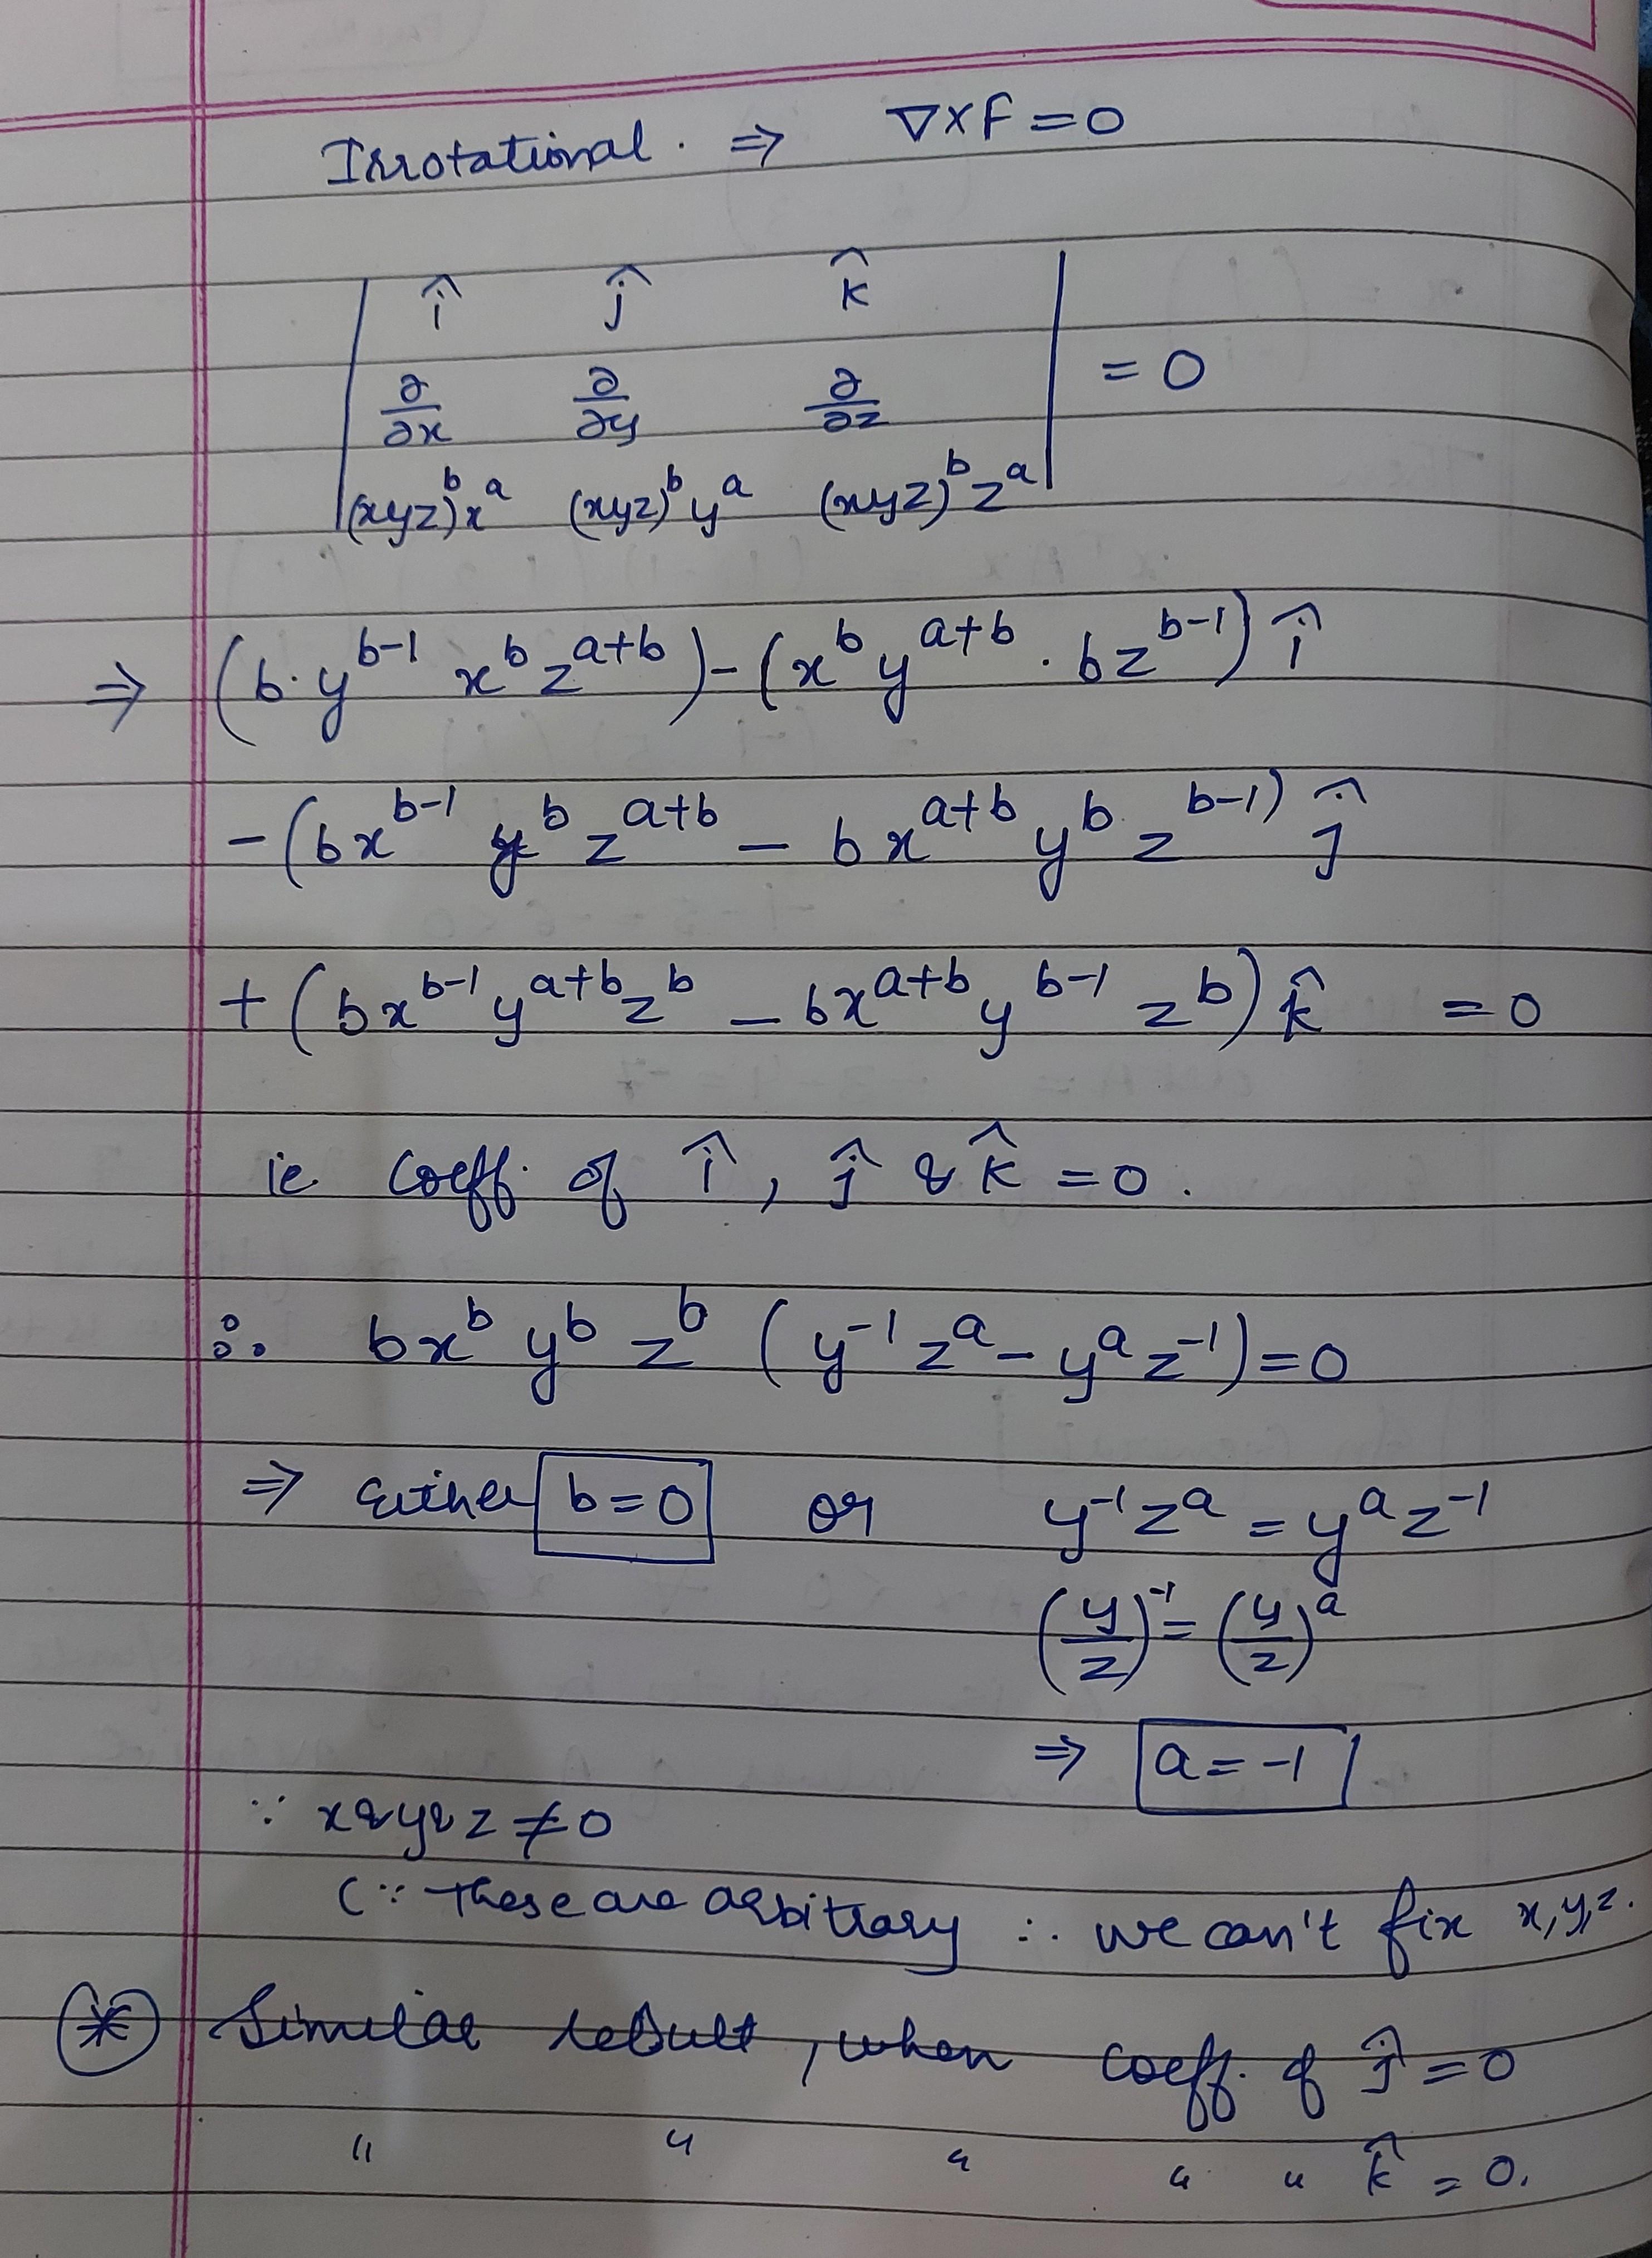 Irrotational. ⇒ ∇×F = 0
| î ĵ k̂ |
| ∂/∂x ∂/∂y ∂/∂z | = 0
| (xyz)^b x^a (xyz)^b y^a (xyz)^b z^a |
⇒ (b·y^{b-1} x^b z^{a+b}) - (x^b y^{a+b} · b z^{b-1}) î
- (b x^{b-1} y^b z^{a+b} - b x^{a+b} y^b z^{b-1}) ĵ
+ (b x^{b-1} y^{a+b} z^b - b x^{a+b} y^{b-1} z^b) k̂ = 0
ie coeff. of î, ĵ & k̂ = 0.
∴ b x^b y^b z^b (y^{-1} z^a - y^a z^{-1}) = 0
⇒ Either b = 0 or y^{-1} z^a = y^a z^{-1}
(y/z)^{-1} = (y/z)^a
⇒ a = -1
∵ x & y & z ≠ 0
(∵ These are arbitrary ∴ we can't fix x, y, z.
* Similar result, when coeff. of ĵ = 0
" " " " " k̂ = 0.